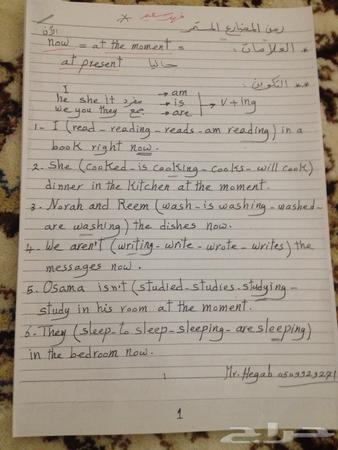 زمن المضارع المستمر
* العلامات : now = at the moment = الآن
at present حاليا
** التكوين :
I → am
he she It مفرد → is → v + ing
we you they جمع → are
1- I (read - reading - reads - am reading) in a
book right now.
2. She (cooked - is cooking - cooks - will cook)
dinner in the Kitchen at the moment.
3. Norah and Reem (wash - is washing - washed -
are washing) the dishes now.
4. We aren't (writing - write - wrote - writes) the
messages now.
5. Osama isn't (studied - studies - studying -
study in his room at the moment.
6. They (sleep - to sleep - sleeping - are sleeping)
in the bedroom now.
Mr. Hegab
1
حراج